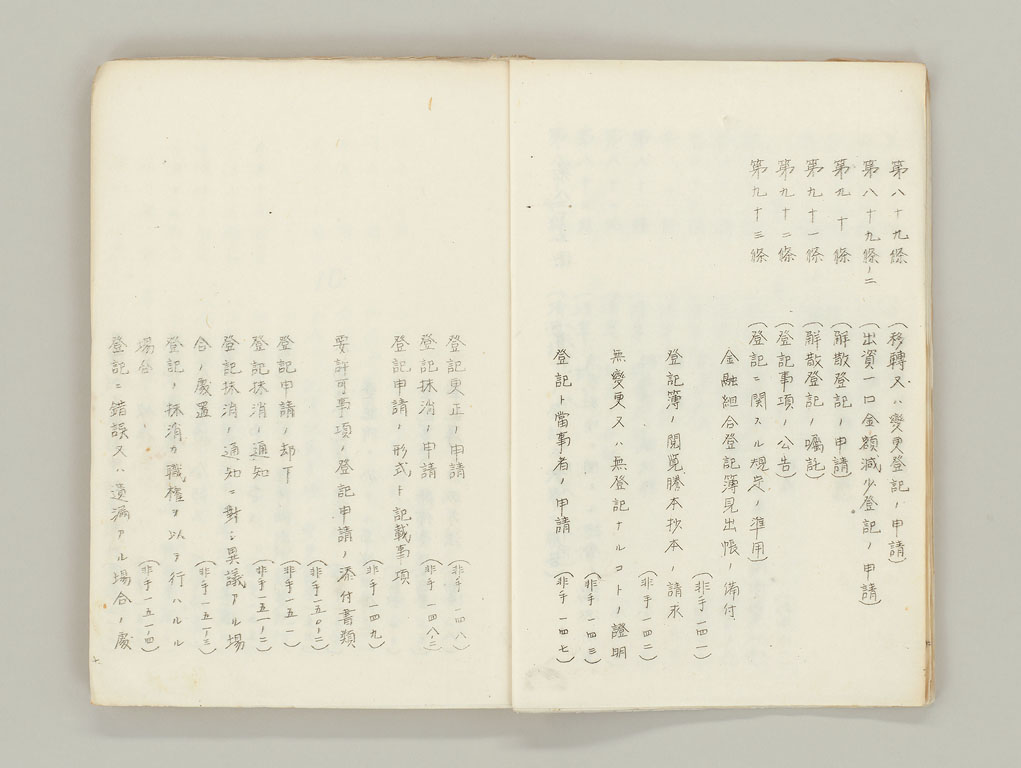 第八十九條 (移轉又ハ變更登記ノ申請)
第八十九條ノ二 (出資一口金額減少登記ノ申請)
第九十條 (解散登記ノ申請)
第九十一條 (解散登記ノ囑託)
第九十二條 (登記事項ノ公告)
第九十三條 (登記ニ関スル規定ノ準用)
金融組合登記簿見出帳ノ備付
(非手一四一)
登記簿ノ閲覧謄本抄本ノ請求
(非手一四二)
無變更又ハ無登記ナルコトノ證明
(非手一四三)
登記ト當事者ノ申請 (非手一四七)
登記更正ノ申請 (非手一四八)
登記抹消ノ申請 (非手一四八ノ二)
登記申請ノ形式ト記載事項
(非手一四九)
要許可事項ノ登記申請ノ添付書類
(非手一五〇ノ二)
登記申請ノ却下 (非手一五一)
登記抹消ノ通知 (非手一五一ノ二)
登記抹消ノ通知ニ對シ異議アル場
合ノ處置 (非手一五一ノ三)
登記ノ抹消ガ職權ヲ以テ行ハルル
場合 (非手一五一ノ四)
登記ニ錯誤又ハ遺漏アル場合ノ處